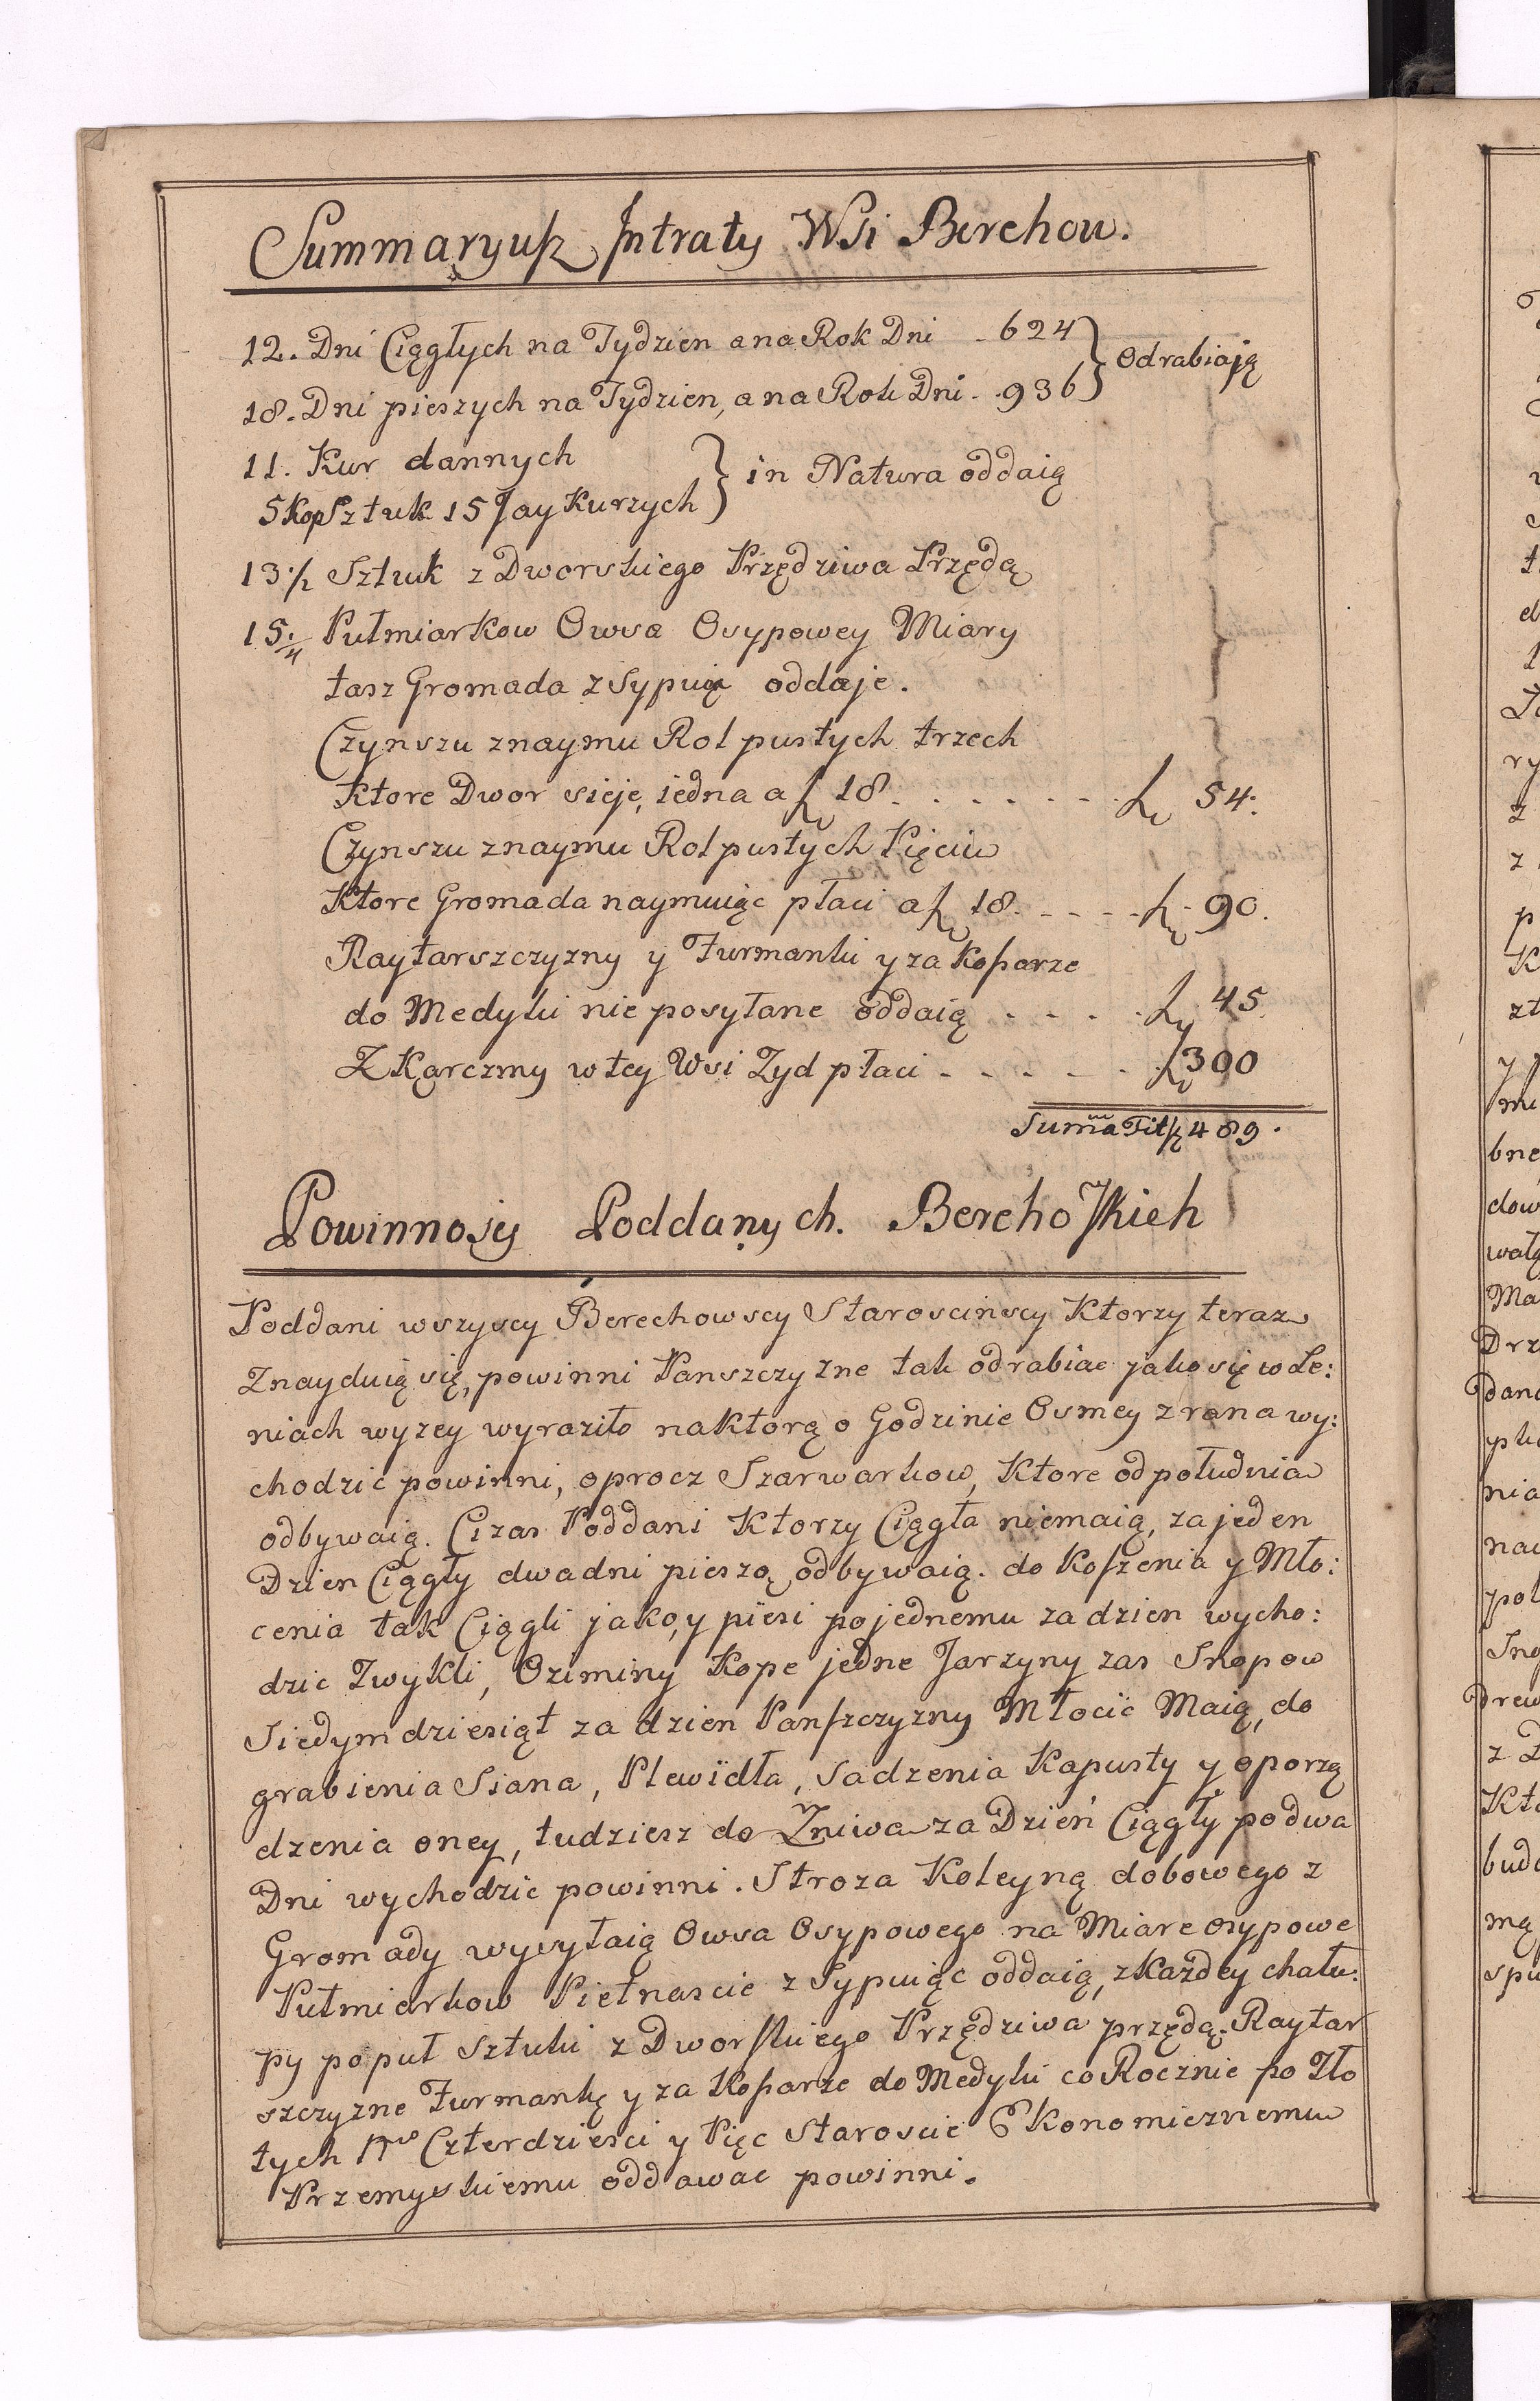 Summaryusz Intraty Wsi Berehow.
12. Dni Ciągłych na Tydzien a na Rok Dni - 624 } Odrabiaią
18. Dni pieszych na Tydzien, a na Rok Dni - 936
11. Kur dannych } in Natura oddaią
5 Kop Sztuk 15 Jay Kurzych
13 1/2 Sztuk z Dworskiego Przędziwa Przędą
15 1/4 Pułmiarkow Owsa Osypowey Miary
tasz Gromada zsypuią oddaje.
Czynszu znaymu Rol pustych trzech
Ktore Dwor sieje, iedna a fl 18 . . . . . . fl 54.
Czynszu znaymu Rol pustych Pięciu
Ktore Gromada naymuiąc płaci a fl 18. - - - - fl - 90.
Raytarszczyzny y Furmanki y za Koparze
do Medyki nie posyłane oddaią . . . . fl 45.
Z Karczmy w tey Wsi Zyd płaci - - - - - fl 300
Suma Fit fl 489.
Powinnosy Poddanych Berehoskich
Poddani wszyscy Berechowscy Staroscinscy Ktorzy teraz
Znayduią się, powinni Panszczyzne tak odrabiac jako się w Le:
niach wyzey wyraziło na Ktorą o Godzinie Osmey z rana wy:
chodzić powinni, oprocz Szarwarkow, Ktore od południa
odbywaią. Ci zas Poddani Ktorzy Ciągła niemaią, za jeden
Dzien Ciągły dwa dni pieszo odbywaią. do Koszenia y Mło:
cenia tak Ciągli jako, y piesi po jednemu za dzien wycho:
dzic Zwykli, Oziminy Kope jedne Jarzyny zas Snopow
Siedymdziesiąt za dzien Panszczyzny Młocić Maią, do
grabienia Siana, Plewidła, Sadzenia Kapusty y oporzą
dzenia oney, tudziesz do Żniwa za Dzień Ciągły po dwa
Dni wychodzic powinni. Stroza Koleyną dobowego z
Gromady wysyłaią Owsa Osypowego na Miare osypowe
Pułmiarkow Pietnascie zsypuiąc oddaią, z Kazdey chału:
py po puł Sztuki z Dworskiego Przędziwa przędą. Raytar
szczyzne Furmankę y za Koparze do Medyki co Rocznie po Zło
tych Nro Czterdziesci y Pięc Staroscie Ekonomicznemu
Przemyskiemu oddawac powinni.